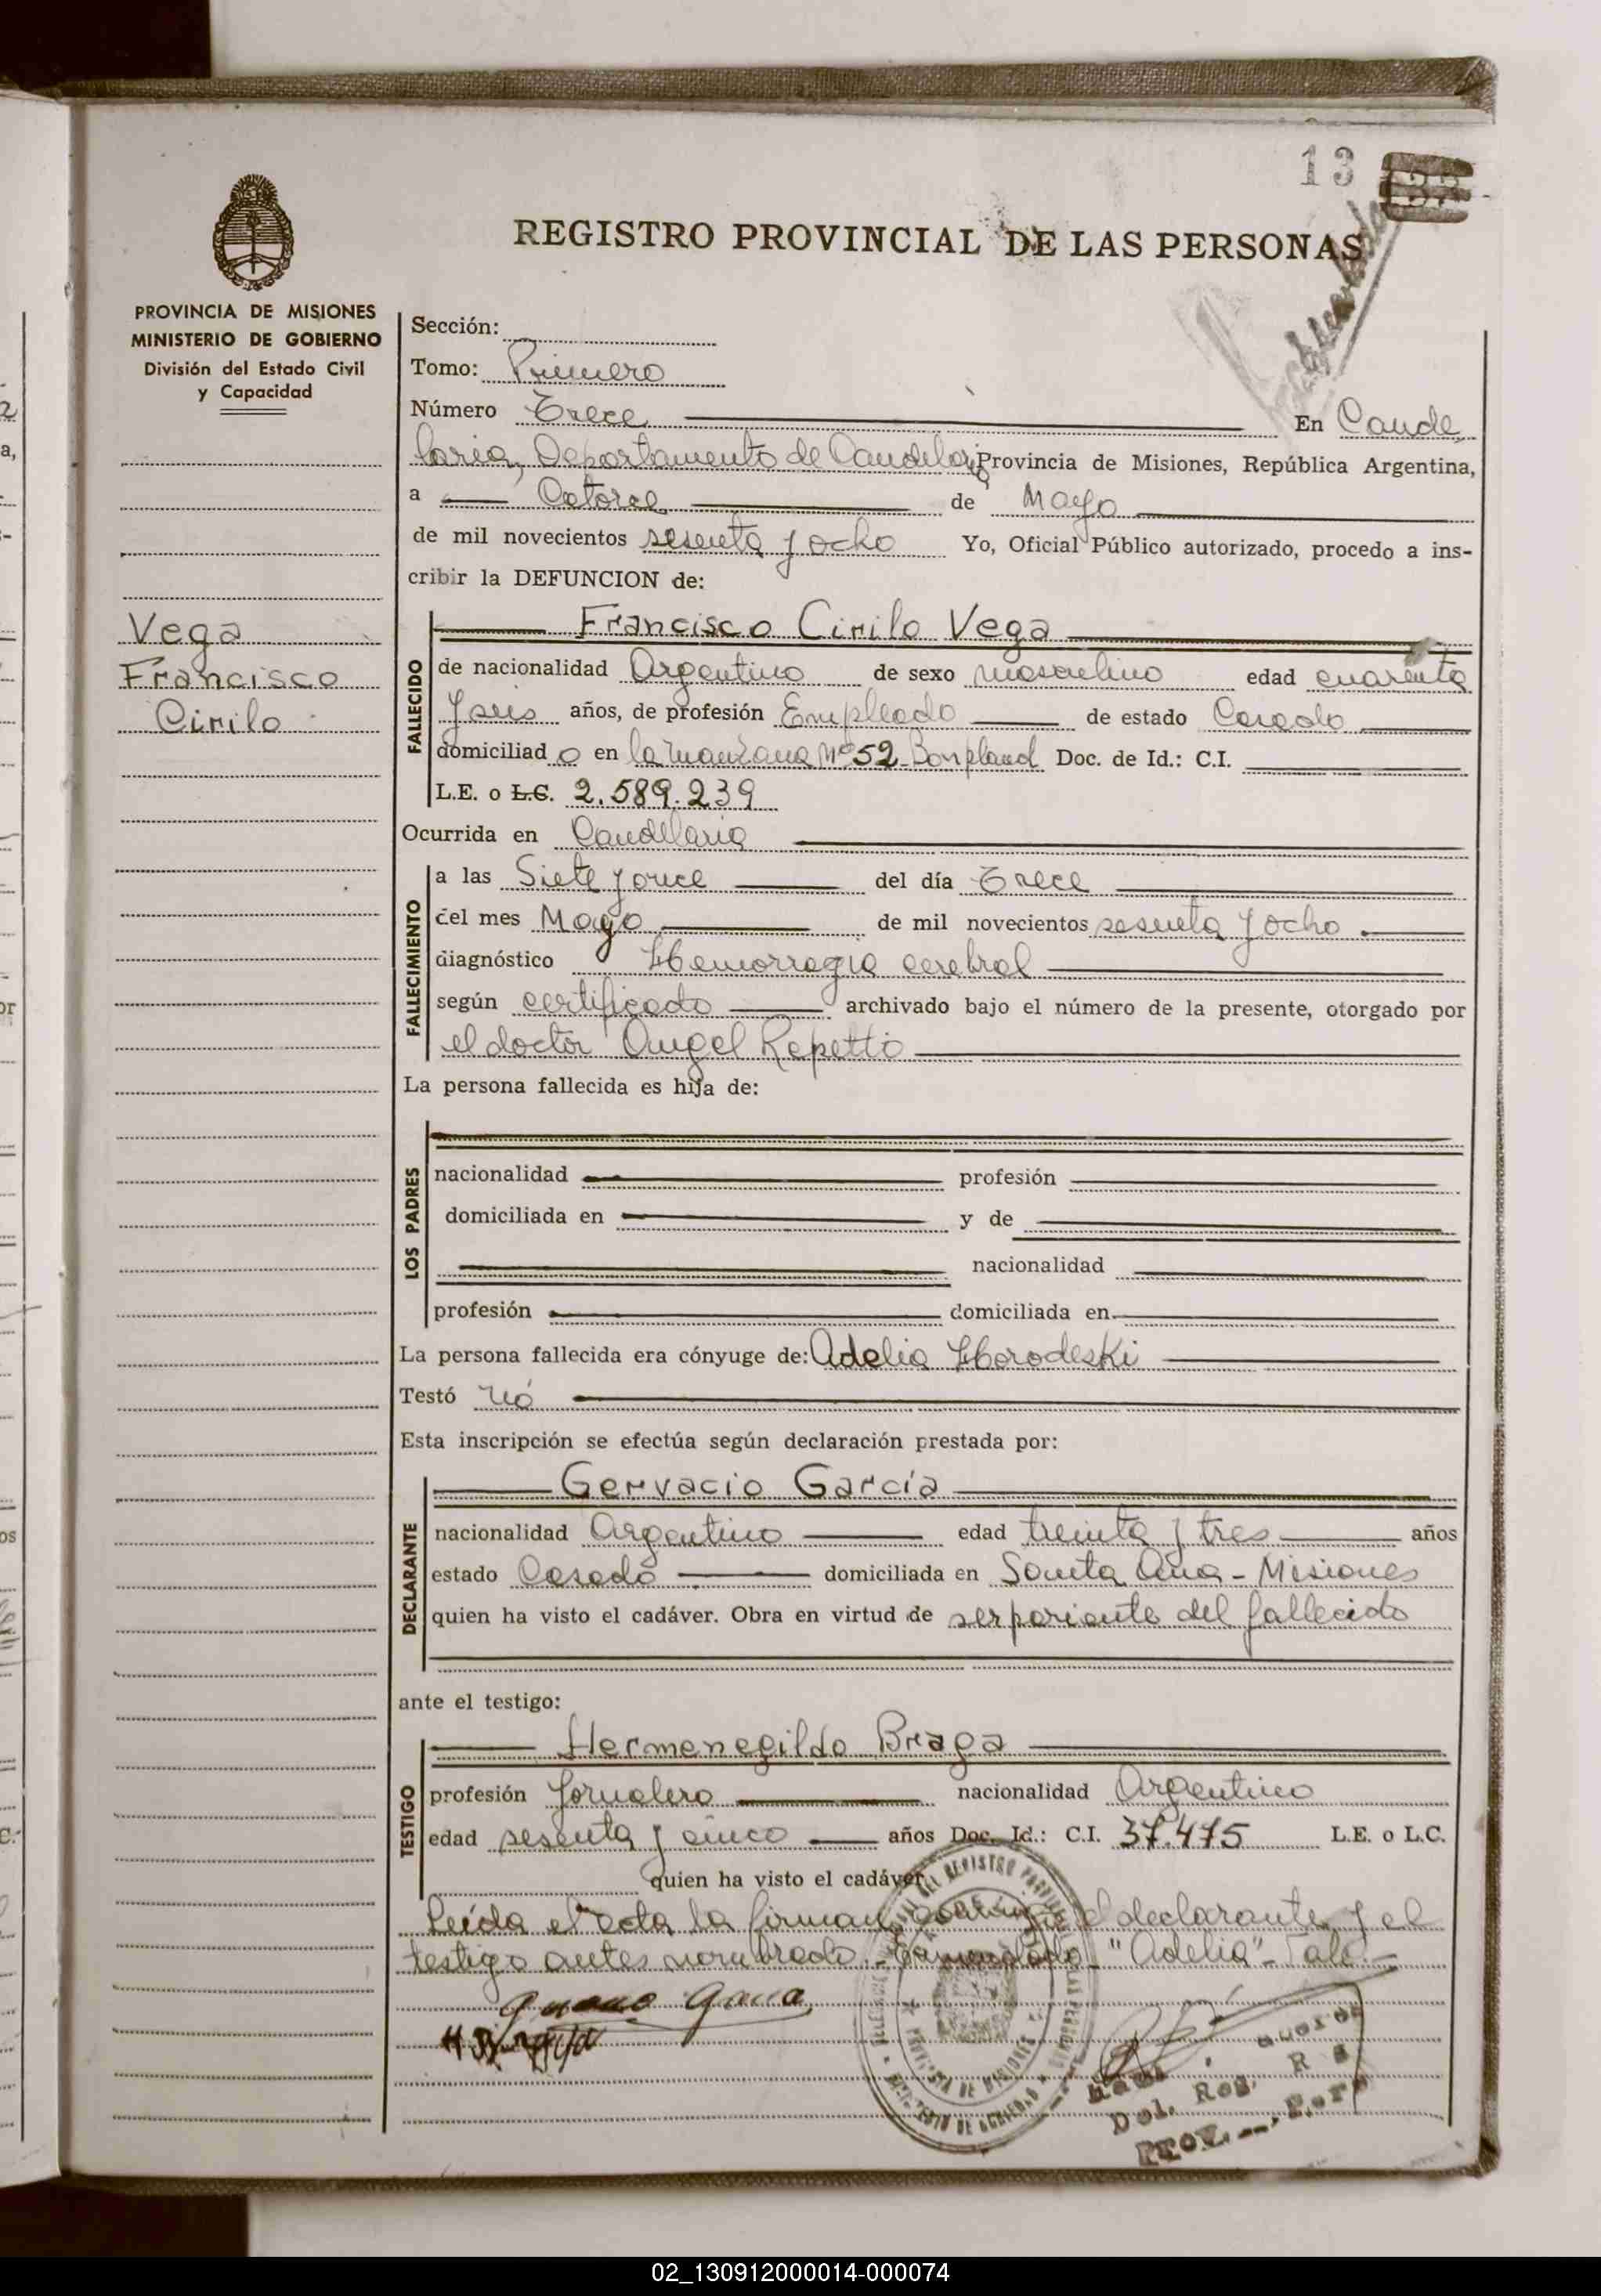 13
REGISTRO PROVINCIAL DE LAS PERSONAS
PROVINCIA DE MISIONES
MINISTERIO DE GOBIERNO
División del Estado Civil
y Capacidad
Vega
Francisco
Cirilo
Sección:
Tomo: Primero
Número Trece En Cande
laria, Departamento de Candelaria Provincia de Misiones, República Argentina,
a Catorce de Mayo
de mil novecientos sesenta y ocho Yo, Oficial Público autorizado, procedo a ins-
cribir la DEFUNCION de:
Francisco Cirilo Vega
FALLECIDO
de nacionalidad Argentino de sexo masculino edad cuarenta
y seis años, de profesión Empleado de estado Casado
domiciliad o en la manzana Nº 52 - Bonpland Doc. de Id.: C.I.
L.E. o L.C. 2.589.239
Ocurrida en Candelaria
FALLECIMIENTO
a las Siete y once del día Trece
del mes Mayo de mil novecientos sesenta y ocho
diagnóstico Hemorragia cerebral
según certificado archivado bajo el número de la presente, otorgado por
el doctor Angel Repetto
La persona fallecida es hija de:
LOS PADRES
nacionalidad profesión
domiciliada en y de
nacionalidad
profesión domiciliada en
La persona fallecida era cónyuge de: Adelia Horodeski
Testó nó
Esta inscripción se efectúa según declaración prestada por:
Gervacio García
DECLARANTE
nacionalidad Argentino edad treinta y tres años
estado Casado domiciliada en Santa Ana - Misiones
quien ha visto el cadáver. Obra en virtud de ser pariente del fallecido
ante el testigo:
Hermenegildo Braga
TESTIGO
profesión Jornalero nacionalidad Argentino
edad sesenta y cinco años Doc. Id.: C.I. 37.475 L.E. o L.C.
quien ha visto el cadáver
Leída el acta la firman conmigo el declarante y el
testigo antes nombrado. - Enmendado "Adelia" - Vale -
PROVINCIA DE MISIONES
Del. Reg.
02_130912000014-000074